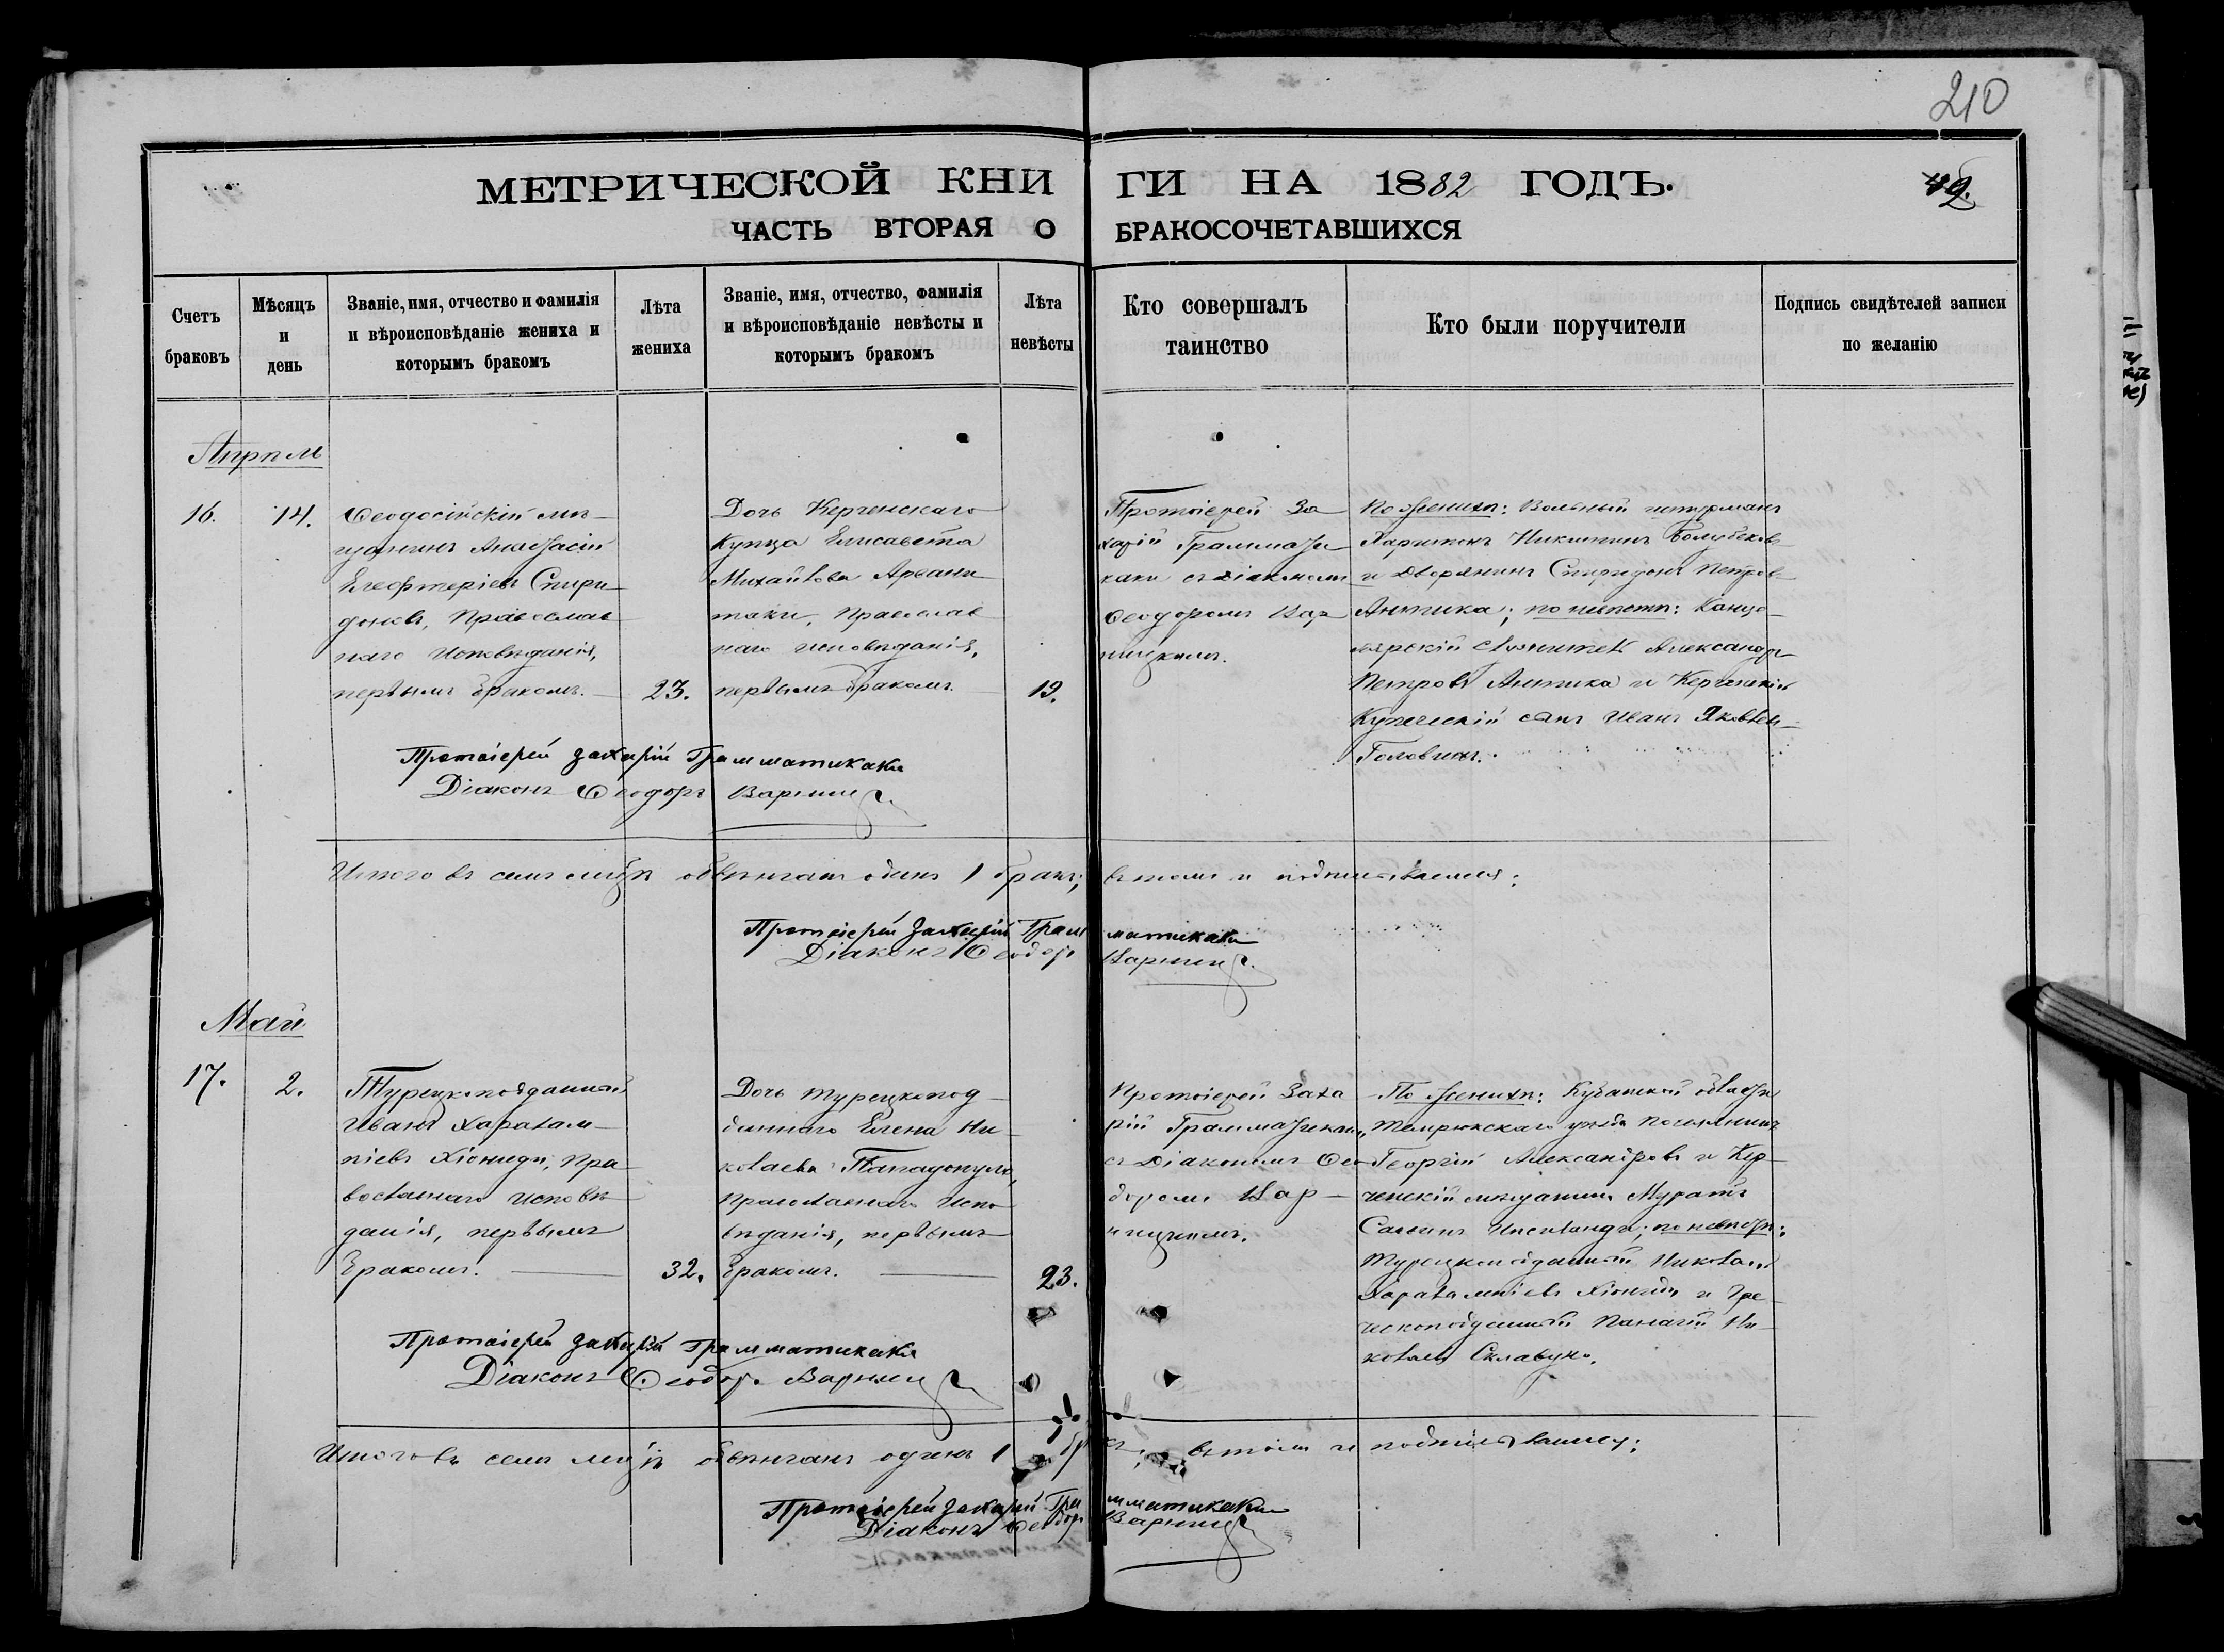 210
МЕТРИЧЕСКОЙ КНИГИ НА 1882 ГОДЪ.
ЧАСТЬ ВТОРАЯ О БРАКОСОЧЕТАВШИХСЯ
Счетъ браковъ
Мѣсяцъ и день
Званіе, имя, отчество и фамилія
и вѣроисповѣданіе жениха и
которымъ бракомъ
Лѣта жениха
Званіе, имя, отчество, фамилія
и вѣроисповѣданіе невѣсты и
которымъ бракомъ
Лѣта невѣсты
Кто совершалъ
таинство
Кто были поручители
Подпись свидѣтелей записи
по желанію
Апрѣль
16.
14.
Ѳеодосійскій мѣ-
щанинъ Анастасій
Елефтеріевъ Спири-
доновъ, Православ
наго исповѣданія,
первымъ бракомъ.
23.
Дочь Керченскаго
Купца Елисавета
Михайлова Арвани
таки, Православ
наго исповѣданія,
первымъ бракомъ.
19.
Протоіерей За
харій Грамматы
каки съ діакономъ
Ѳеодоромъ Вар
ницкимъ.
По женихѣ: Вольный штурманъ
Харитонъ Никитинъ
и Дворянинъ Спиридонъ Петровъ
Антика; по невѣстѣ: Канце-
лярскій служитель Александръ
Петровъ Антика и Керченскій
Купеческій сынъ Иванъ Яковлевъ
Головинъ.
Протоіерей Захарій Грамматикаки
Діаконъ Ѳеодоръ Варниц
Итого въ семъ мцѣ обвѣнчанъ одинъ 1 бракъ; въ томъ и подписываемся:
Протоіерей Захарій Грамматикаки
Діаконъ Ѳеодоръ Варниц
Май
17.
2.
Турецкоподданный
Иванъ Харалам-
піевъ Хіониди, Пра-
вославнаго исповѣ
данія, первымъ
бракомъ.
32.
Дочь турецкопод-
даннаго Елена Ни-
колаева Пападопуло,
Православнаго испо
вѣданія, первымъ
бракомъ.
23.
Протоіерей Заха
рій Грамматикаки,
съ Діакономъ Ѳео
доромъ Вар-
ницкимъ.
По женихѣ: Кубанской области
Темрюкскаго уѣзда поселянинъ
Георгій Александровъ и Кер-
ченскій мѣщанинъ Муратъ
по невѣстѣ:
Турецкоподданный Николай
Харалампіевъ Хіониди и Гре-
ческоподданный Панагій Ни-
колаевъ Склавуно.
Протоіерей Захарій Грамматикаки
Діаконъ Ѳеодоръ Варниц
Итого въ семъ мцѣ обвѣнчанъ одинъ 1 бракъ; въ томъ и подписываемся:
Протоіерей Захарій Грамматикаки
Діаконъ Ѳеодоръ Варниц